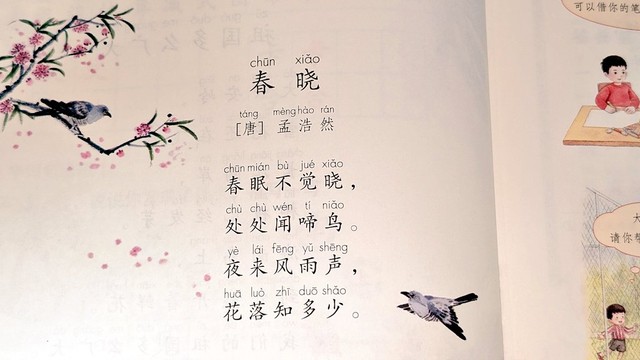 chūn xiǎo
春晓
táng mèng hào rán
[唐] 孟浩然
chūn mián bù jué xiǎo
春眠不觉晓，
chù chù wén tí niǎo
处处闻啼鸟。
yè lái fēng yǔ shēng
夜来风雨声，
huā luò zhī duō shǎo
花落知多少。
可以借你的笔
大
请你帮